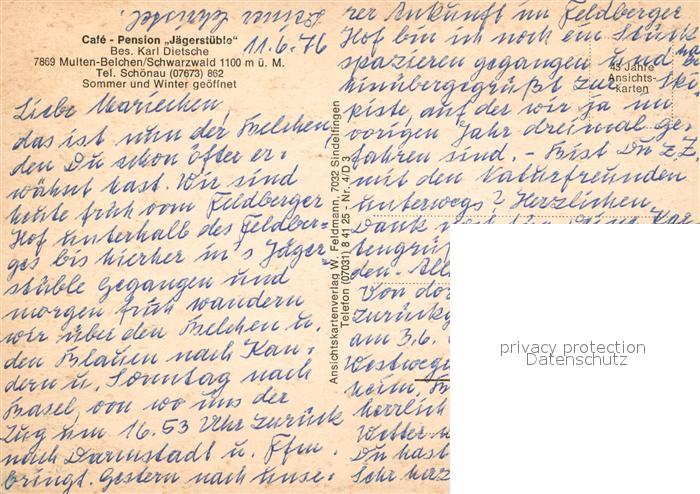 Café - Pension „Jägerstüble“
Bes. Karl Dietsche
7869 Multen-Belchen/Schwarzwald 1100 m ü. M.
Tel. Schönau (07673) 862
Sommer und Winter geöffnet
11.6.76
Liebe Mariechen,
das ist nun der Belchen,
den Du schon öfter er-
wähnt hast. Wir sind
heute früh vom Feldberger
Hof unterhalb des Feldber-
ges bis hierher in's Jäger-
stüble gegangen und
morgen früh wandern
wir über den Belchen u.
den Blauen nach Kan-
dern u. Sonntag nach
Basel, von wo uns der
Zug um 16.53 Uhr zurück
nach Darmstadt u. Ffm.
bringt. Gestern nach unse-
rer Ankunft im Feldberger
Hof bin ich noch ein Stück
spazieren gegangen und
hinübergegrüßt zur Ski
kiste, auf der wir ja im
vorigen Jahr dreimal ge-
fahren sind. - Bist Du z.Z.
mit den Naturfreunden
unterwegs? Herzlichen
Dank
tengrü
den. All
Von dor
zurückg
am 3.6.
Westwege
heim,
herrlich
Wetter
Du hast
Sehr herz
45 Jahre
Ansichts-
karten
Ansichtskartenverlag W. Feldmann, 7032 Sindelfingen
Telefon (07031) 8 41 25 - Nr. 4/D 3
privacy protection
Datenschutz